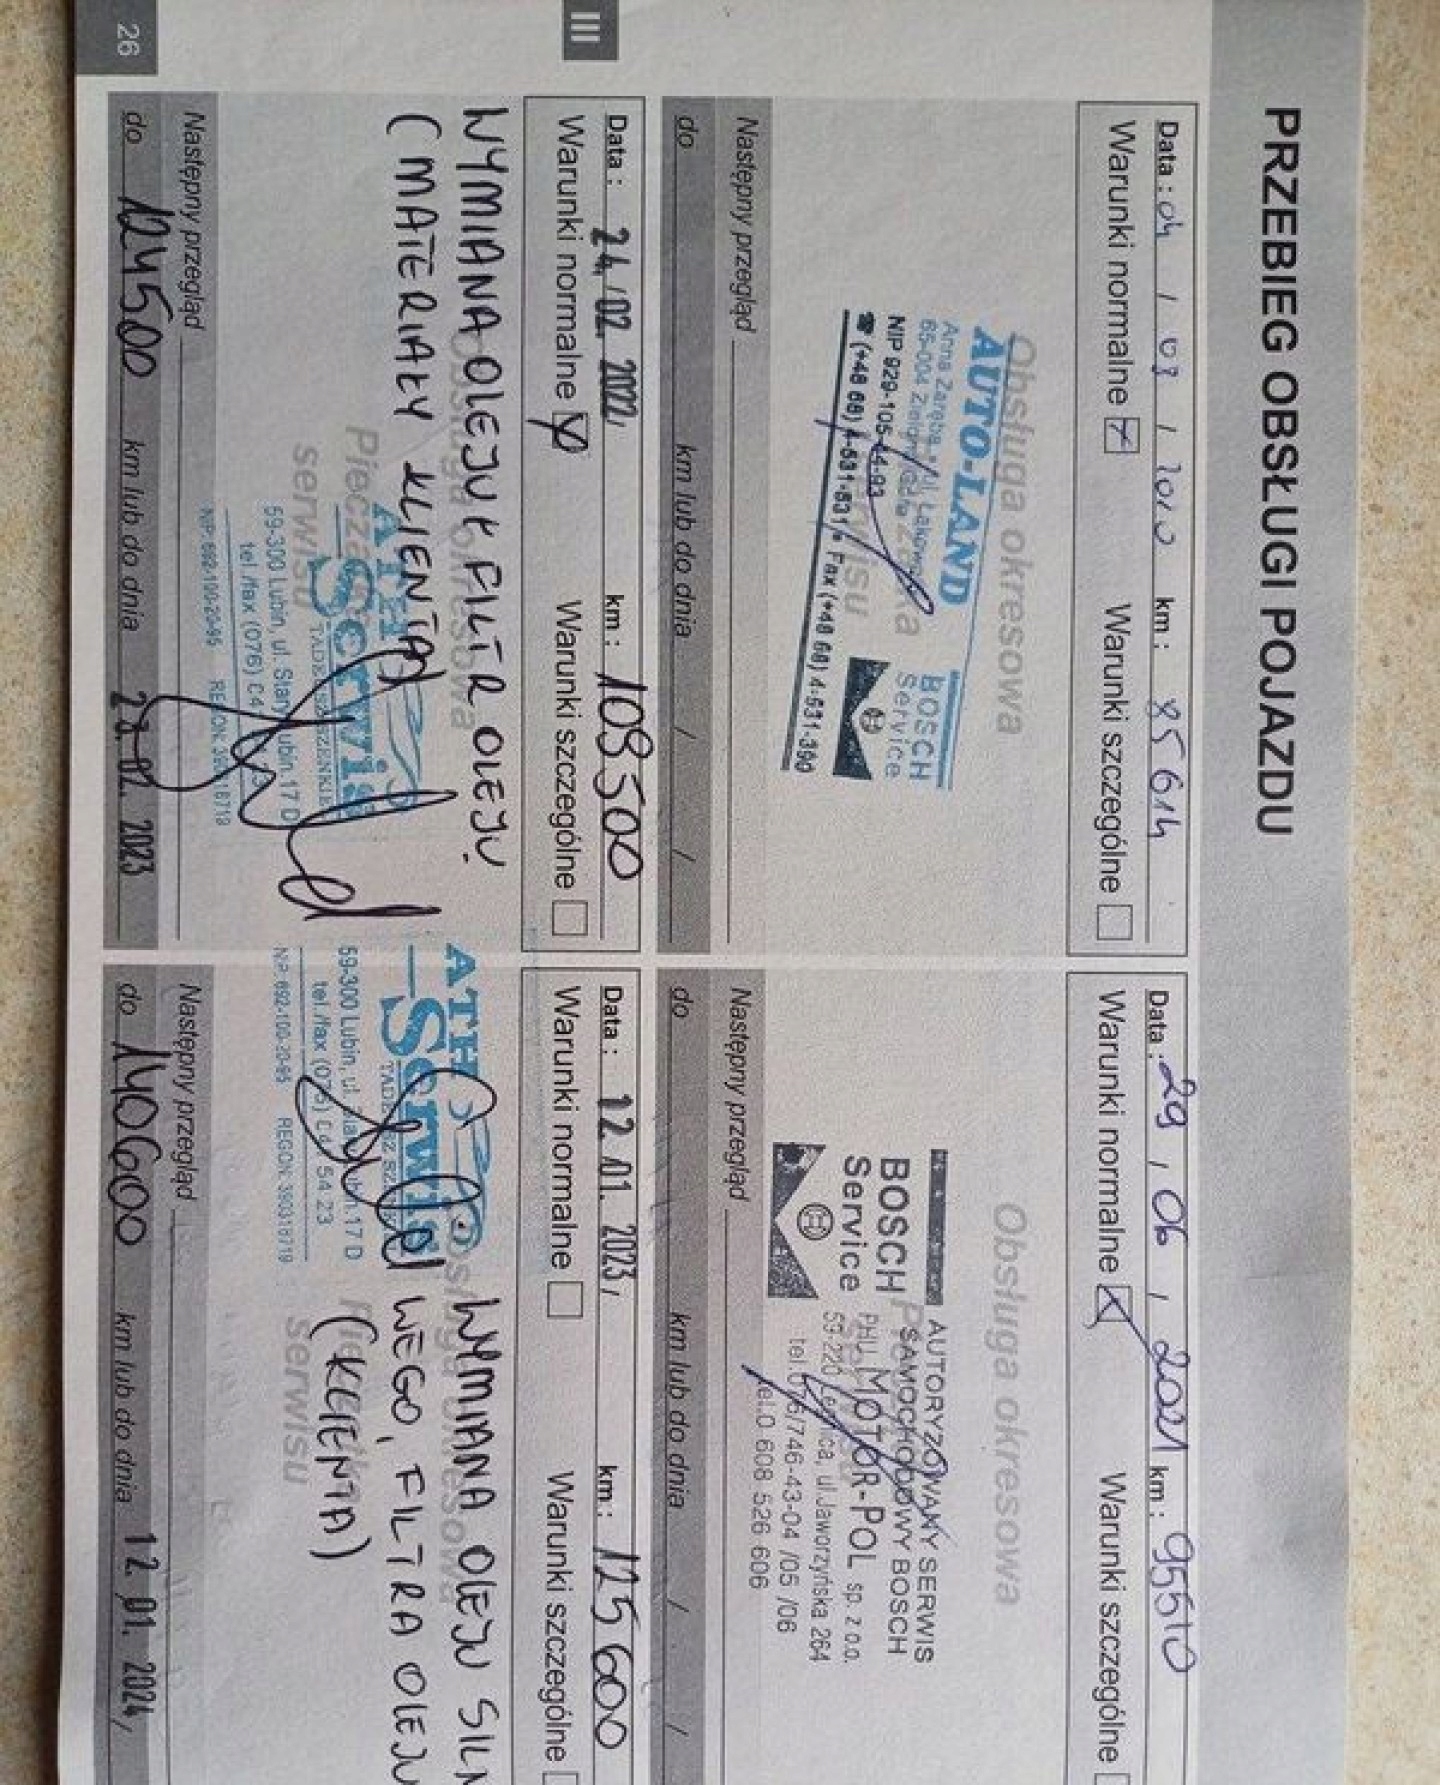 PRZEBIEG OBSŁUGI POJAZDU
Data : 04 / 08 / 2020 km : 85614
Warunki normalne Warunki szczególne
Obsługa okresowa
AUTO-LAND
BOSCH
Service
NIP 929-105-
☎ (+48 68) 4-531-531 • Fax (+48 68) 4-531-390
Następny przegląd
do km lub do dnia / /
Data : 29 / 06 / 2021 km : 95510
Warunki normalne Warunki szczególne
Obsługa okresowa
AUTORYZOWANY SERWIS
SAMOCHODOWY BOSCH
BOSCH
Service
PHU MOTOR-POL sp. z o.o.
59-220 Legnica, ul.Jaworzyńska 264
tel.076/746-43-04 /05 /06
tel.0 608 526 606
Następny przegląd
do km lub do dnia / /
III
Data : 24 / 02. 2022 / km : 109500
Warunki normalne Warunki szczególne
WYMIANA OLEJU + FILTR OLEJU
(MATERIAŁY KLIENTA)
Serwis
59-300 Lubin, ul. 17 D
tel./fax (076)
NIP: 692-100-20-95 REGON:
Następny przegląd
do 124500 km lub do dnia 02. 2023
Data : 12. 01. 2023 / km : 125600
Warunki normalne Warunki szczególne
ATH
Serwis
59-300 Lubin, ul. 17 D
tel./fax (076) 54 23
NIP: 692-100-20-95 REGON: 390316719
WYMIANA OLEJU SILN
WEGO, FILTRA OLEJU
(KLIENTA)
serwisu
Następny przegląd
do 140600 km lub do dnia 12. 01. 2024 /
26